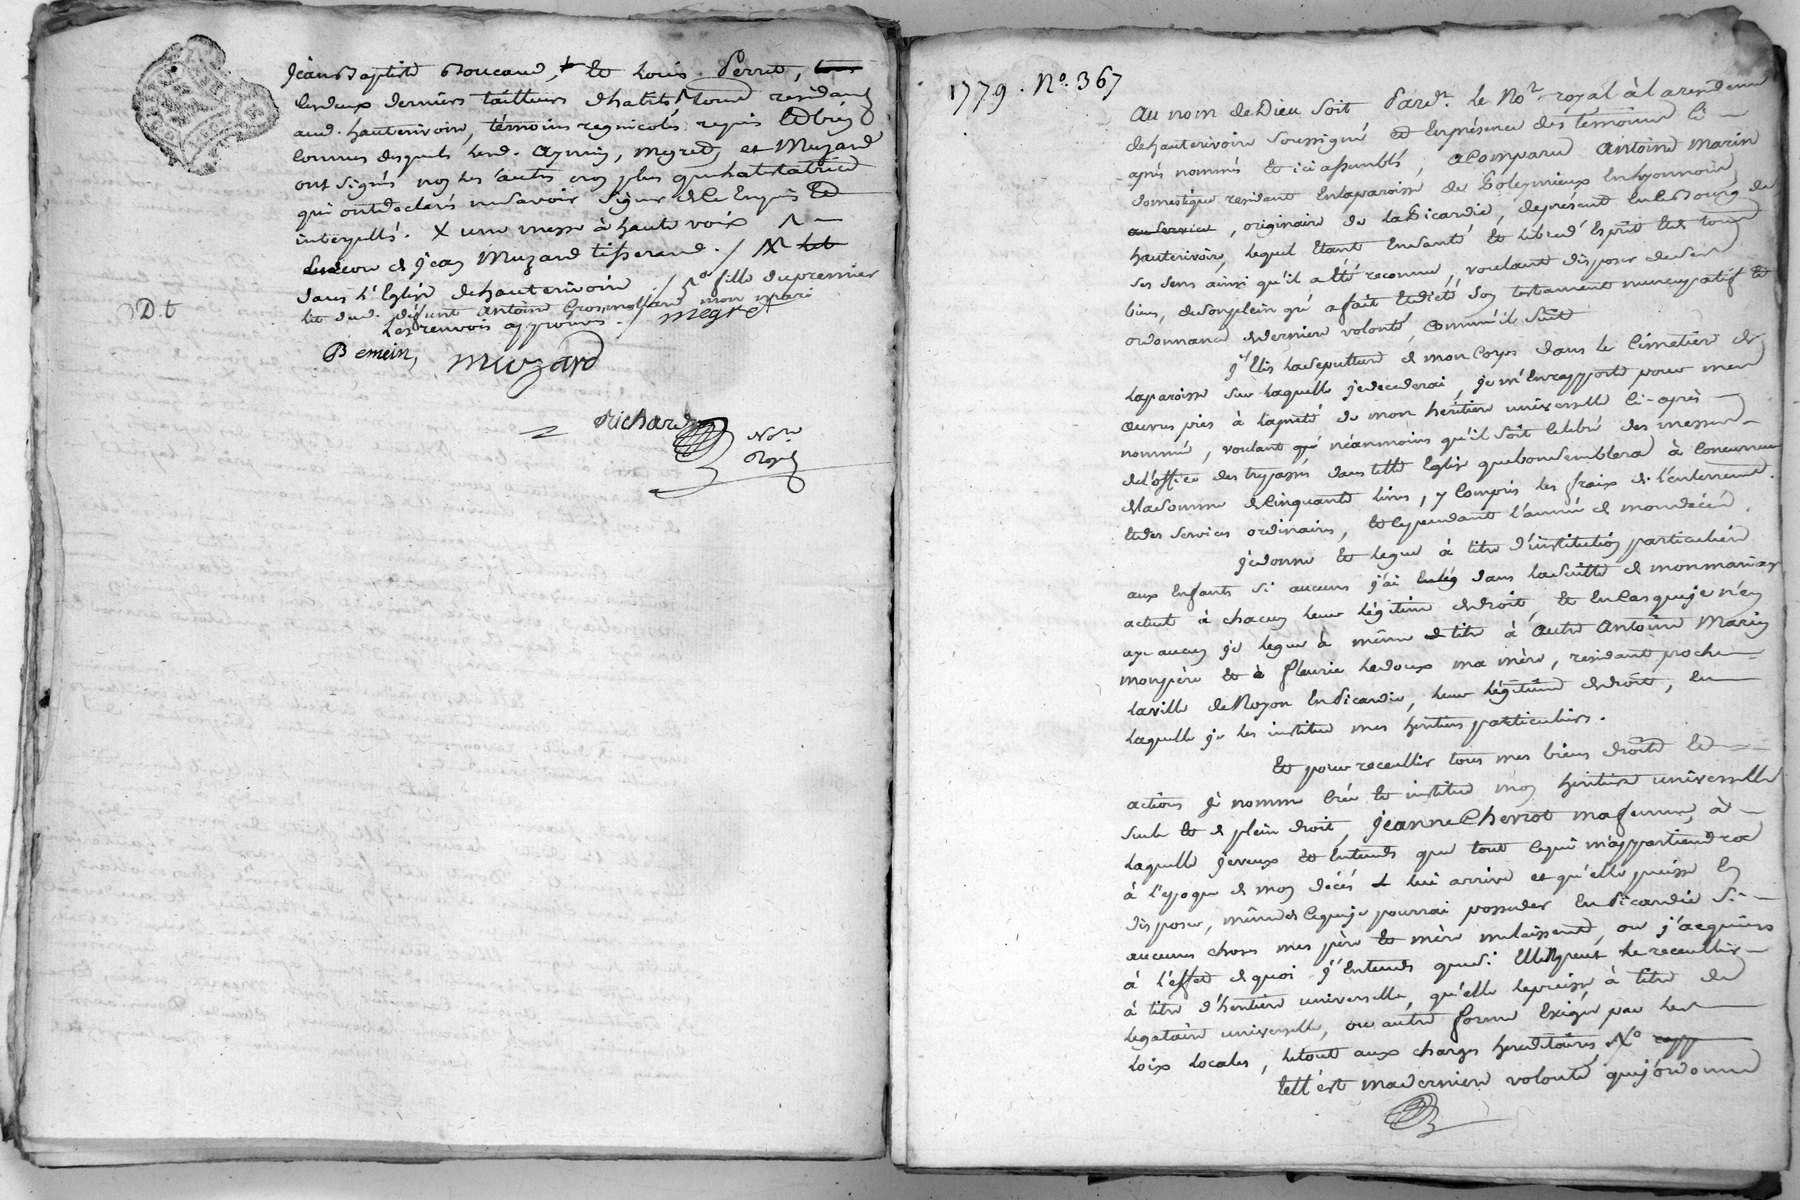 Jean Baptiste Boucaud, et Louis Perret,
les deux derniers tailleurs d'habits tous residant
aud. hauterivoire, témoins regnicoles requis et
connus desquels lesd. Aymin, megret et Muzard
ont signés non les autres non plus que la testatrice
qui ont declarés ne savoir signer de ce enquis et
interpellés. X une messe à haute voix
de Jean Muzard tisserand. /
dans l'Eglise de hauterivoire / fille du premier
lit dud. défunt Antoine mon mari
Les renvois approuvés. / megret
D. t
Bemein, muzard
Richard
No.re
Royal
1779. N.o 367
Au nom de Dieu soit Pard.t le No.re royal à la residence
de hauterivoire soussigné et en presence des témoins ci-
après nommés et ici assemblés, a comparu Antoine Marin
domestique residant en la paroisse de Poleymieux en Lyonnois
au service, originaire de la Picardie, de present en ce Bourg de
hauterivoire, lequel étant en santé et libre d'Esprit et de tous
ses sens ainsi qu'il a été reconnu, voulant disposer de ses
biens, de son plein gré a fait et dicté son testament nuncupatif et
ordonnance de derniere volonté, comme il suit
j'Elis la sepulture de mon Corps dans le Cimetiere de
la paroisse sur laquelle je decederai, je m'en rapporte pour mes
œuvres pies à la pieté de mon héritiere universelle ci-après
nommée, voulant néanmoins qu'il soit celebré des messes
de l'office des trepassés dans telle Eglise que bon semblera à concurrence
de la somme de Cinquante livres, y compris les fraix de l'enterrement
et des services ordinaires, et ce pendant l'année de mon décès.
Je donne et legue à titre d'institution particuliere
aux Enfants si aucuns j'ai dans la suitte de mon mariage
actuel à chacun leur légitime de droit, et en cas que je n'en
aye aucun je legue à même titre à autre Antoine Marin
mon père et à fleurie Ledoux ma mère, residant proche
la ville de Noyon en Picardie, leur légitime de droit, en
laquelle je les institue mes heritiers particuliers.
Et pour receuillir tous mes biens droits et
actions je nomme crée et institue mon heritiere universelle
seule et de plein droit, Jeanne Cherrot ma femme, à
laquelle je veux et entends que tout ce qui m'appartiendra
à l'epoque de mon décès lui arrive et qu'elle puisse en
disposer, même de ce que je pourrai posseder en Picardie si
aucunes choses mes père et mère me laissent, ou j'acquiers
à l'effet de quoi j'entends que si Elle ne peut le receuillir
à titre d'heritiere universelle, qu'elle le puisse à titre de
legataire universelle, ou autre forme Exigée par les
loix locales, le tout aux charges hereditaires
telle est ma derniere volonté que j'ordonne